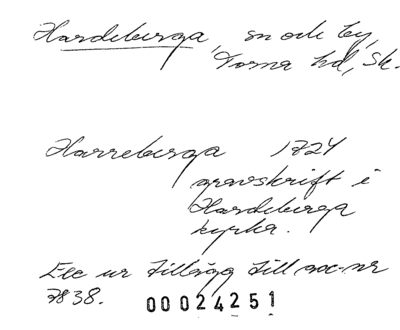 Hardeberga, sn och by,
Torna hd, Sk.
Harreberga 1724
gravskrift i
Hardeberga
kyrka.
Exc ur Tillägg till acc-nr
7838. 00024251